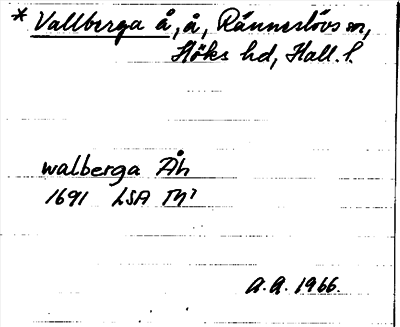 * Vallberga å, å, Ränneslövs sn,
Höks hd, Hall. l.
walberga Åh
1691 LSA M¹
A.A. 1966.